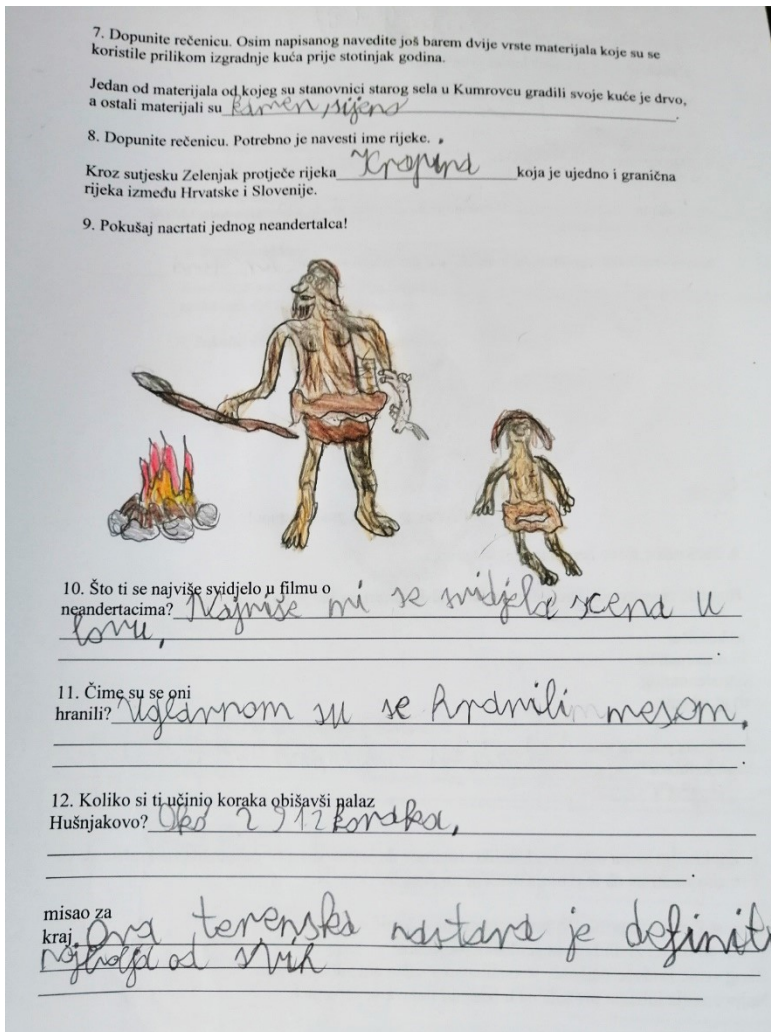 7. Dopunite rečenicu. Osim napisanog navedite još barem dvije vrste materijala koje su se
koristile prilikom izgradnje kuća prije stotinjak godina.
Jedan od materijala od kojeg su stanovnici starog sela u Kumrovcu gradili svoje kuće je drvo,
a ostali materijali su kamen, sijeno.
8. Dopunite rečenicu. Potrebno je navesti ime rijeke.
Kroz sutjesku Zelenjak protječe rijeka Krapina koja je ujedno i granična
rijeka između Hrvatske i Slovenije.
9. Pokušaj nacrtati jednog neandertalca!
10. Što ti se najviše svidjelo u filmu o
neandertacima? Najviše mi se svidjela scena u
lovu.
11. Čime su se oni
hranili? Uglavnom su se hranili mesom.
12. Koliko si ti učinio koraka obišavši nalaz
Hušnjakovo? Oko 2912 koraka.
misao za
kraj Ova terenska nastava je definit
najbolja od svih